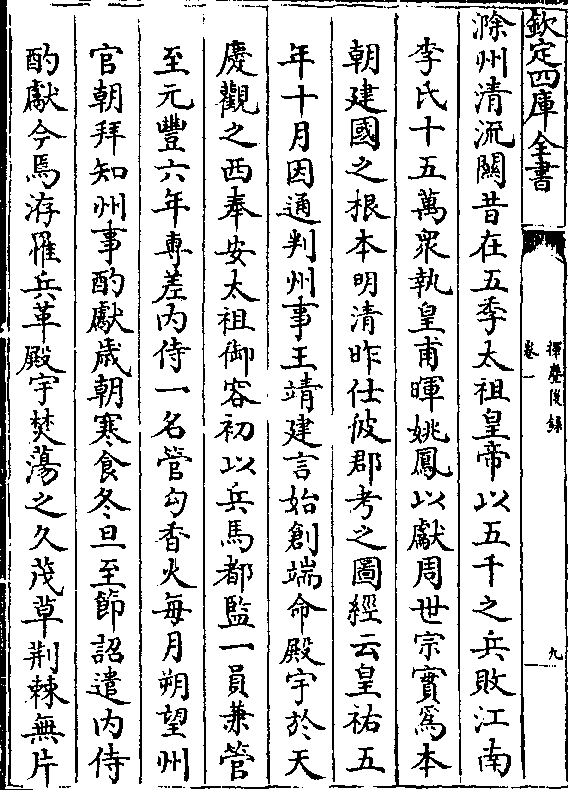 欽定四庫全書
揮麈後錄
卷一
九
滁州清流關昔在五季太祖皇帝以五千之兵敗江南
李氏十五萬衆執皇甫暉姚鳳以獻周世宗實爲本
朝建國之根本明清昨仕彼郡考之圖經云皇祐五
年十月因通判州事王靖建言始創端命殿宇於天
慶觀之西奉安太祖御容初以兵馬都監一員兼管
至元豐六年專差内侍一名管勾香火每月朔望州
官朝拜知州事酌獻歲朝寒食冬旦至節詔遣内侍
酌獻今焉洊罹兵革殿宇焚蕩之久茂草荆棘無片